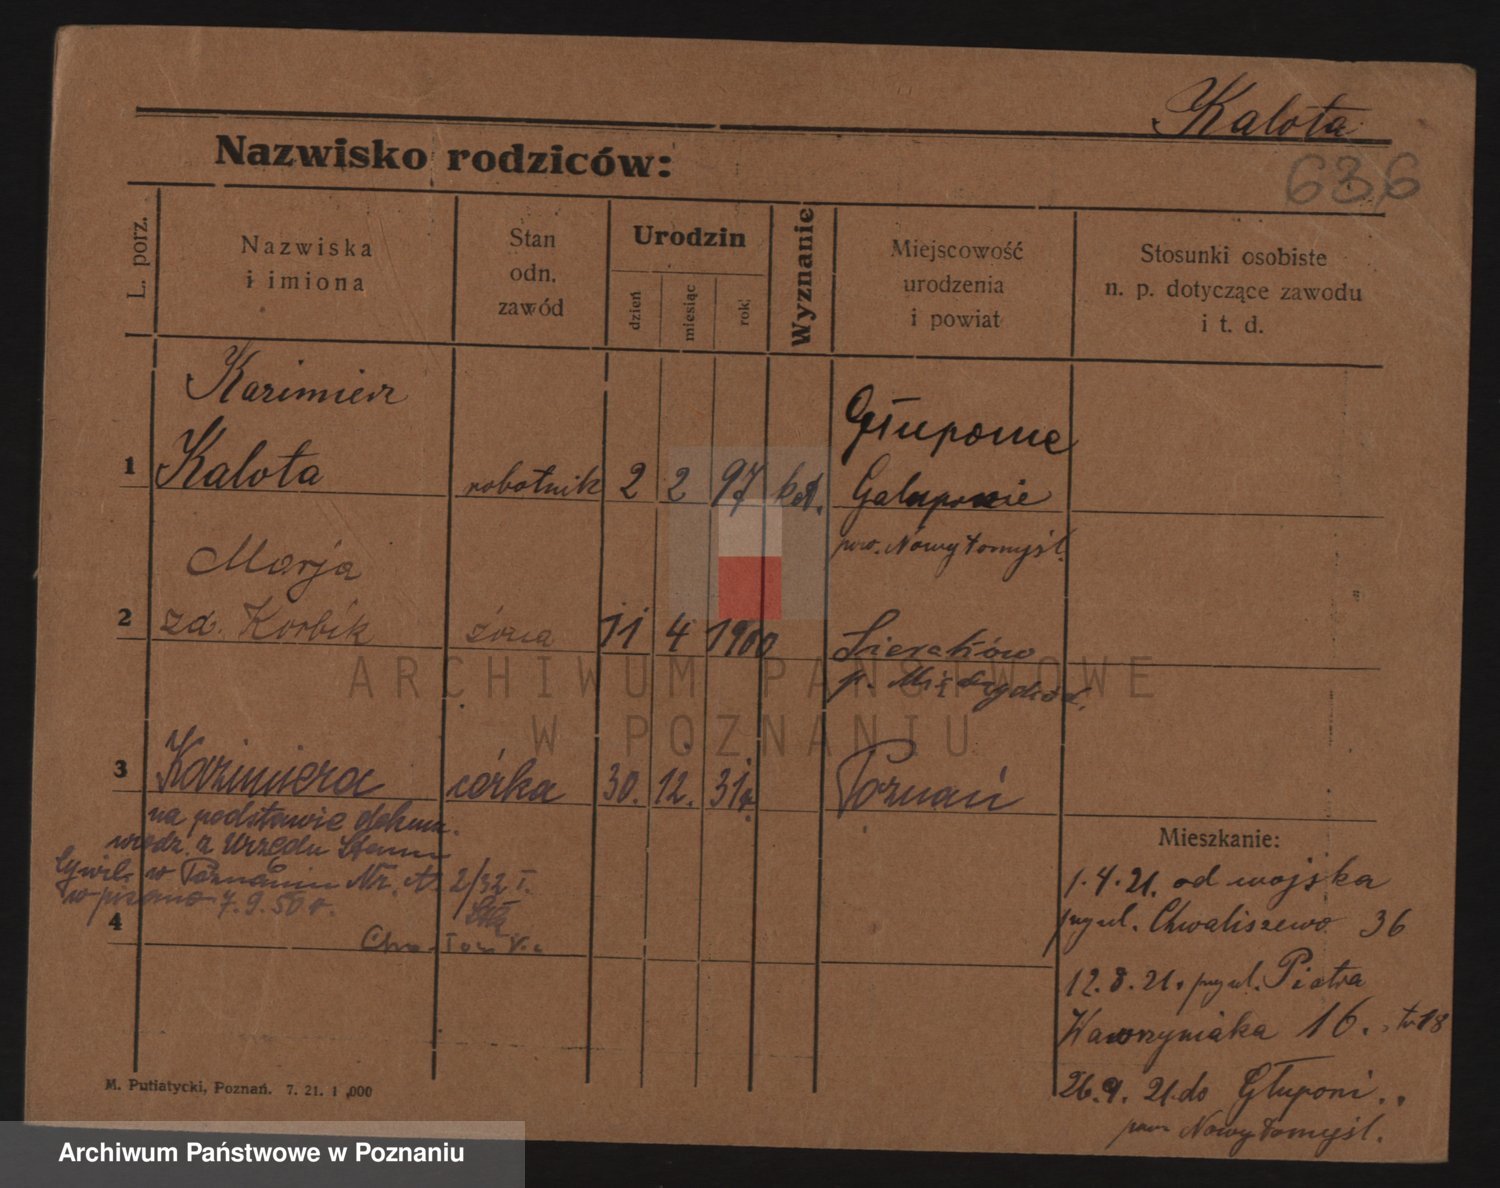 Kalota
Nazwisko rodziców:
636
L. porz.
Nazwiska
i imiona
Stan
odn.
zawód
Urodzin
dzień
miesiąc
rok
Wyznanie
Miejscowość
urodzenia
i powiat
Stosunki osobiste
n. p. dotyczące zawodu
i t. d.
Kazimierz
Głuponie
1 Kalota robotnik 2 2 97 kat. Galuponie
pow. Nowy tomyśl.
Marja
2 zd. Korbik żona 11 4 1900 Sieraków
p. Międzychód.
3 Kazimiera córka 30. 12. 31r. Poznań
na podstawie dokum.
urodz. z Urzędu Stanu
Cywil. w Poznaniu Nr. 2/32 I.
wpisano 7.9.50 r.
4
Mieszkanie:
1.4.21. od wojska
przy ul. Chwaliszewo 36
12.8.21. przy ul. Piotra
Wawrzyniaka 16. tr 18
26.9.21 do Głuponi..
pow Nowy tomyśl.
M. Putiatycki, Poznań. 7. 21. 1 000
ARCHIWUM PAŃSTWOWE
W POZNANIU
Archiwum Państwowe w Poznaniu